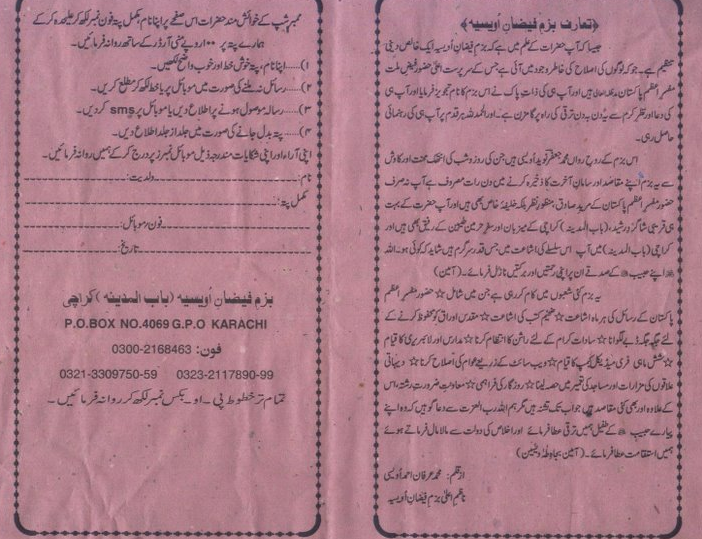 ﴿تعارف بزم فیضانِ اُویسیہ﴾
جیسا کہ آپ حضرات کے علم میں ہے کہ بزم فیضانِ اُویسیہ ایک خالص دینی
تنظیم ہے۔ جو کہ لوگوں کی اصلاح کی خاطر وجود میں آئی ہے جس کے سرپرست اعلیٰ حضور فیض ملت
مفسر اعظم پاکستان مدظلہ العالی ہیں اور آپ ہی کی ذات پاک نے اس بزم کا نام تجویز فرمایا اور آپ ہی
کی دعا اور نظر کرم سے یہ دن بہ دن ترقی کی راہ پر گامزن ہے۔ اور الحمد للہ ہر قدم پر آپ ہی کی رہنمائی
حاصل رہی۔
اس بزم کے روحِ رواں محمد جعفر نوید اُویسی ہیں جن کی روز و شب کی انتھک محنت اور کاوش
سے یہ بزم اپنے مقاصد اور سامانِ آخرت کا ذخیرہ کرنے میں دن رات مصروف ہے آپ نہ صرف
حضور مفسر اعظم پاکستان کے مرید صادق، منظورِ نظر بلکہ خلیفہ خاص بھی ہیں اور آپ حضرت کے بہت
ہی قریبی شاگردِ رشید، (باب المدینہ) کراچی کے میزبان اور سفرِ حرمین طیبین کے رفیق بھی ہیں اور
کراچی (باب المدینہ) میں آپ اس سلسلے کی اشاعت میں جس قدر سرگرم ہیں شاید کہ کوئی ہو۔ اللہ
اپنے حبیب ﷺ کے صدقے ان پر اپنی رحمتیں اور برکتیں نازل فرمائے۔ (آمین)
یہ بزم کئی شعبوں میں کام کر رہی ہے جن میں شامل ☆ حضور مفسر اعظم
پاکستان کے رسائل کی ہر ماہ اشاعت ☆ ضخیم کتب کی اشاعت ☆ مقدس اوراق کو محفوظ کرنے کے
لئے جگہ جگہ ڈبے لگوانا ☆ سادات کرام کے لئے راشن کا انتظام کرنا ☆ مدارس اور لائبریری کا قیام
☆ شش ماہی فری میڈیکل کیمپ کا قیام ☆ ویب سائٹ کے ذریعے عوام کی اصلاح کرنا ☆ دیہاتی
علاقوں کی مزارات اور مساجد کی تعمیر میں حصہ لینا ☆ روزگار کی فراہمی ☆ معاونتِ ضرورتِ رشتہ، اس
کے علاوہ اور بھی کئی مقاصد ہیں جو اب تک تشنہ ہیں مگر ہم اللہ رب العزت سے دعا گو ہیں کہ وہ اپنے
پیارے حبیب ﷺ کے طفیل ہمیں ترقی عطا فرمائے اور اخلاص کی دولت سے مالا مال فرماتے ہوئے
ہمیں استقامت عطا فرمائے۔ (آمین بجاہ طٰہٰ و یٰسین)
از قلم: محمد عرفان احمد اُویسی
ناظم اعلیٰ بزم فیضانِ اُویسیہ
ممبر شپ کے خواہش مند حضرات اس صفحے پر اپنا نام، مکمل پتہ، فون نمبر لکھ کر علیحدہ کر کے
ہمارے پتہ پر ۱۰۰ روپے منی آرڈر کے ساتھ روانہ فرمائیں۔
۱)..... اپنا نام، پتہ خوش خط اور خوب واضح لکھیں۔
۲)..... رسائل نہ ملنے کی صورت میں موبائل پر یا خط لکھ کر مطلع کریں۔
۳)..... رسالہ موصول ہونے پر اطلاع دیں یا موبائل پر sms کر دیں۔
۴)..... پتہ بدل جانے کی صورت میں جلد از جلد اطلاع دیں۔
اپنی آراء اور اپنی شکایات مندرجہ ذیل موبائل نمبرز پر درج کر کے ہمیں روانہ فرمائیں۔
نام: ولدیت:
مکمل پتہ:
فون موبائل:
تاریخ:
بزم فیضانِ اُویسیہ (باب المدینہ) کراچی
P.O.BOX NO.4069 G.P.O KARACHI
فون: 0300-2168463
0321-3309750-59 0323-2117890-99
تمام تر خطوط پی۔او۔بکس نمبر لکھ کر روانہ فرمائیں۔